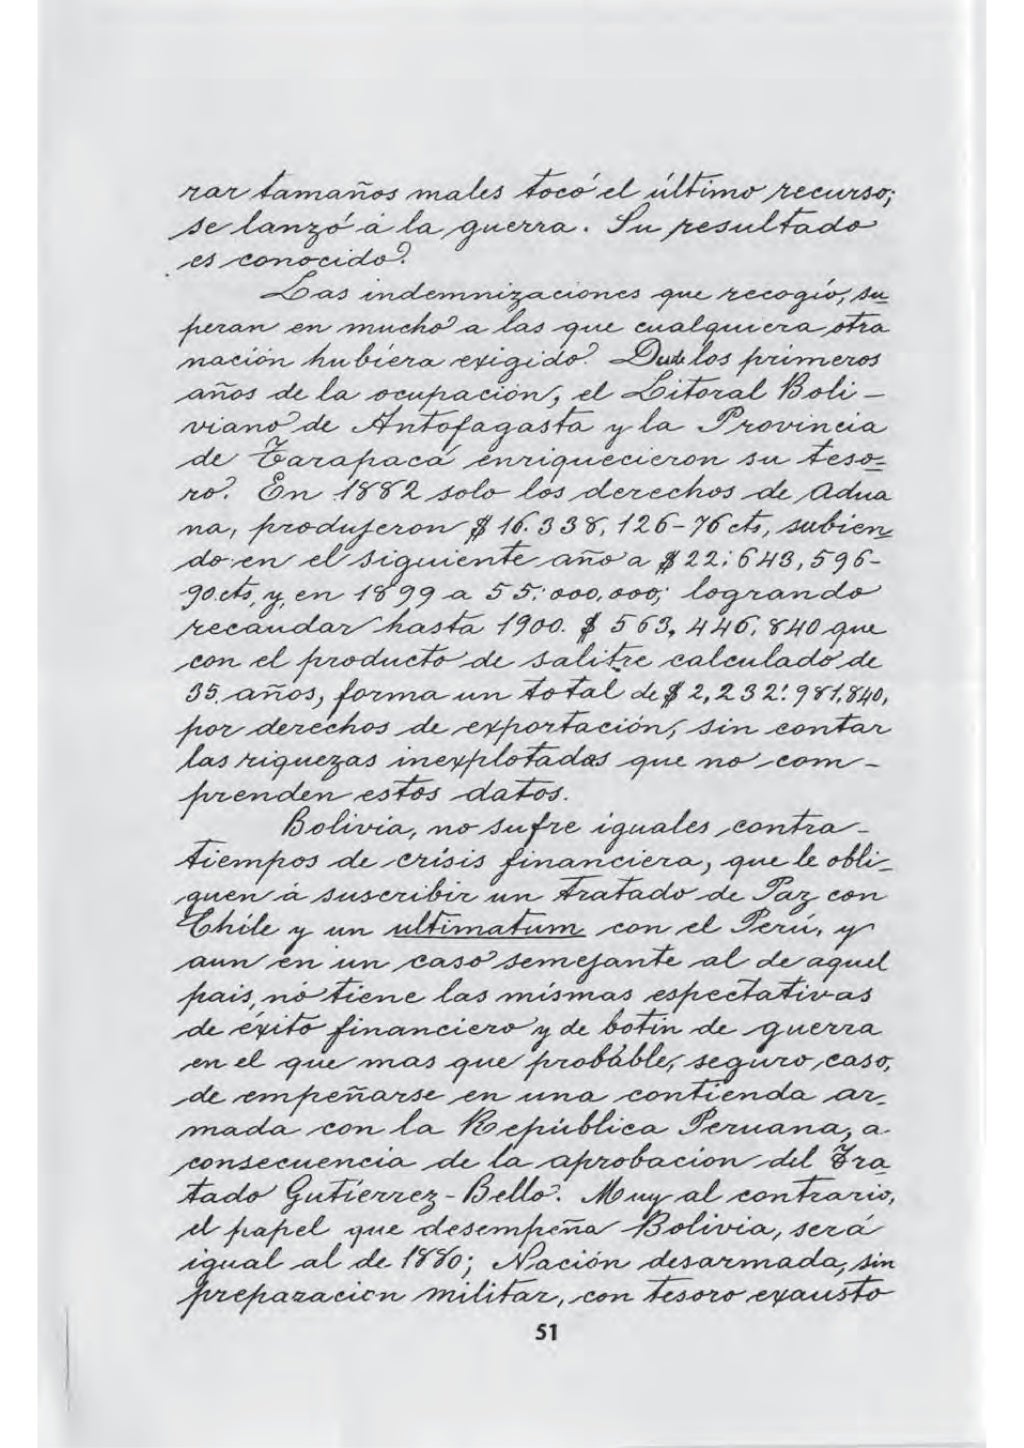 rar tamaños males tocó el último recurso;
se lanzó á la guerra. Su resultado
es conocido.
Las indemnizaciones que recogió, su
peran en mucho a las que cualquiera otra
nación hubiera exigido. Desde los primeros
años de la ocupación, el Litoral Boli-
viano de Antofagasta y la Provincia
de Tarapacá enriquecieron su teso-
ro. En 1882 solo los derechos de Adua
na, produjeron $ 16.338,126-76 cts, subien
do en el siguiente año a $ 22:643,596-
90.cts, y, en 1899 a 55:000,000; logrando
recaudar hasta 1900. $ 563,446,840 que
con el producto de salitre calculado de
35 años, forma un total de $ 2,232:981,840,
por derechos de exportación, sin contar
las riquezas inexplotadas que no com-
prenden estos datos.
Bolivia, no sufre iguales contra-
tiempos de crísis financiera, que le obli-
guen á suscribir un tratado de Paz con
Chile y un ultimatum con el Perú, y
aun en un caso semejante al de aquel
pais, nó tiene las mísmas espectativas
de éxito financiero y de botin de guerra
en el que mas que probáble, seguro caso,
de empeñarse en una contienda ar-
mada con la República Peruana, a
consecuencia de la aprobacion del Tra
tado Gutíerrez-Bello. Muy al contrario,
el papel que desempeña Bolivia, será
igual al de 1880; Nación desarmada, sin
preparacion militar, con tesoro exausto
51